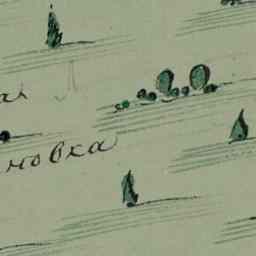 а
новка